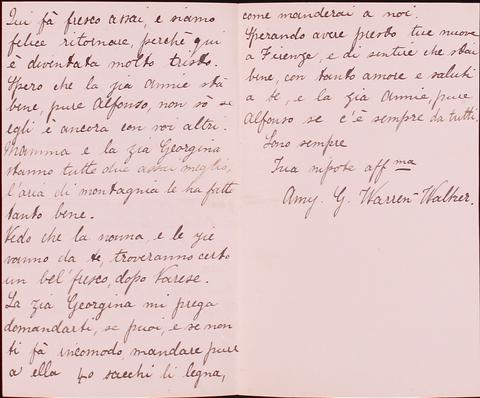 Qui fà fresco assai, e siamo
felice ritornare, perchè qui
è diventata molto triste.
Spero che la zia Annie stà
bene, pure Alfonso, non sò se
egli è ancora con voi altri.
Mamma e la zia Georgina
stanno tutte due assai meglio,
l'aria di montagnia le ha fatte
tanto bene.
Vedo che la nonna, e le zie
vanno da te, troveranno certo
un bel' fresco, dopo Varese.
La zia Georgina mi prega
domandarti, se puoi, e se non
ti fà incomodo, mandare pure
a ella 40 sacchi li legna,
come manderai a noi.
Sperando avere presto tue nuove
a Firenze, e di sentire che stai
bene, con tanto amore e saluti
a te, e la zia Annie, pure
Alfonso se c'è sempre da tutti.
Sono sempre
Tua nipote affma
Amy. G. Warren-Walker.